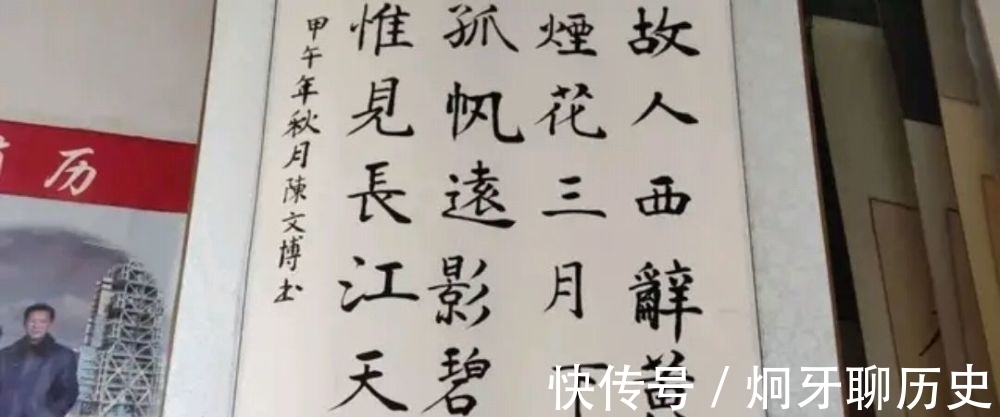 故人西辭黄
煙花三月下
孤帆遠影碧
惟見長江天
甲午年秋月陳文博书
历
快传号 / 炯牙聊历史